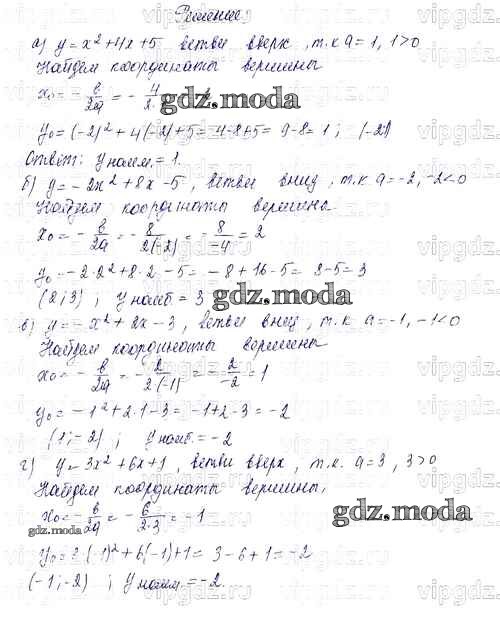 Решение
а) y = x² + 4x + 5 ветви вверх, т.к a = 1, 1>0
Найдем координаты вершины
x₀ = - в/2a = - 4/2
gdz.moda
y₀ = (-2)² + 4(-2) + 5 = 4-8+5 = 9-8 = 1; (-2;1)
Ответ: y наим. = 1.
б) y = -2x² + 8x - 5, ветви вниз, т.к a = -2, -2<0
Найдем координаты вершины
x₀ = - в/2a = - 8/2(-2) = - 8/-4 = 2
y₀ = -2·2² + 8·2 - 5 = -8 + 16 - 5 = 8-5 = 3
(2;3); y наиб. = 3 gdz.moda
в) y = -x² + 2x - 3, ветви вниз, т.к a = -1, -1<0
Найдем координаты вершины
x₀ = - в/2a = - 2/2(-1) = - 2/-2 = 1
y₀ = -1² + 2·1 - 3 = -1+2-3 = -2
(1;-2); y наиб. = -2
г) y = 3x² + 6x + 1, ветви вверх, т.к. a = 3, 3>0
Найдем координаты вершины,
x₀ = - в/2a = - 6/2·3 = -1
gdz.moda
gdz.moda
y₀ = 3(-1)² + 6(-1) + 1 = 3-6+1 = -2
(-1;-2); y наим. = -2.